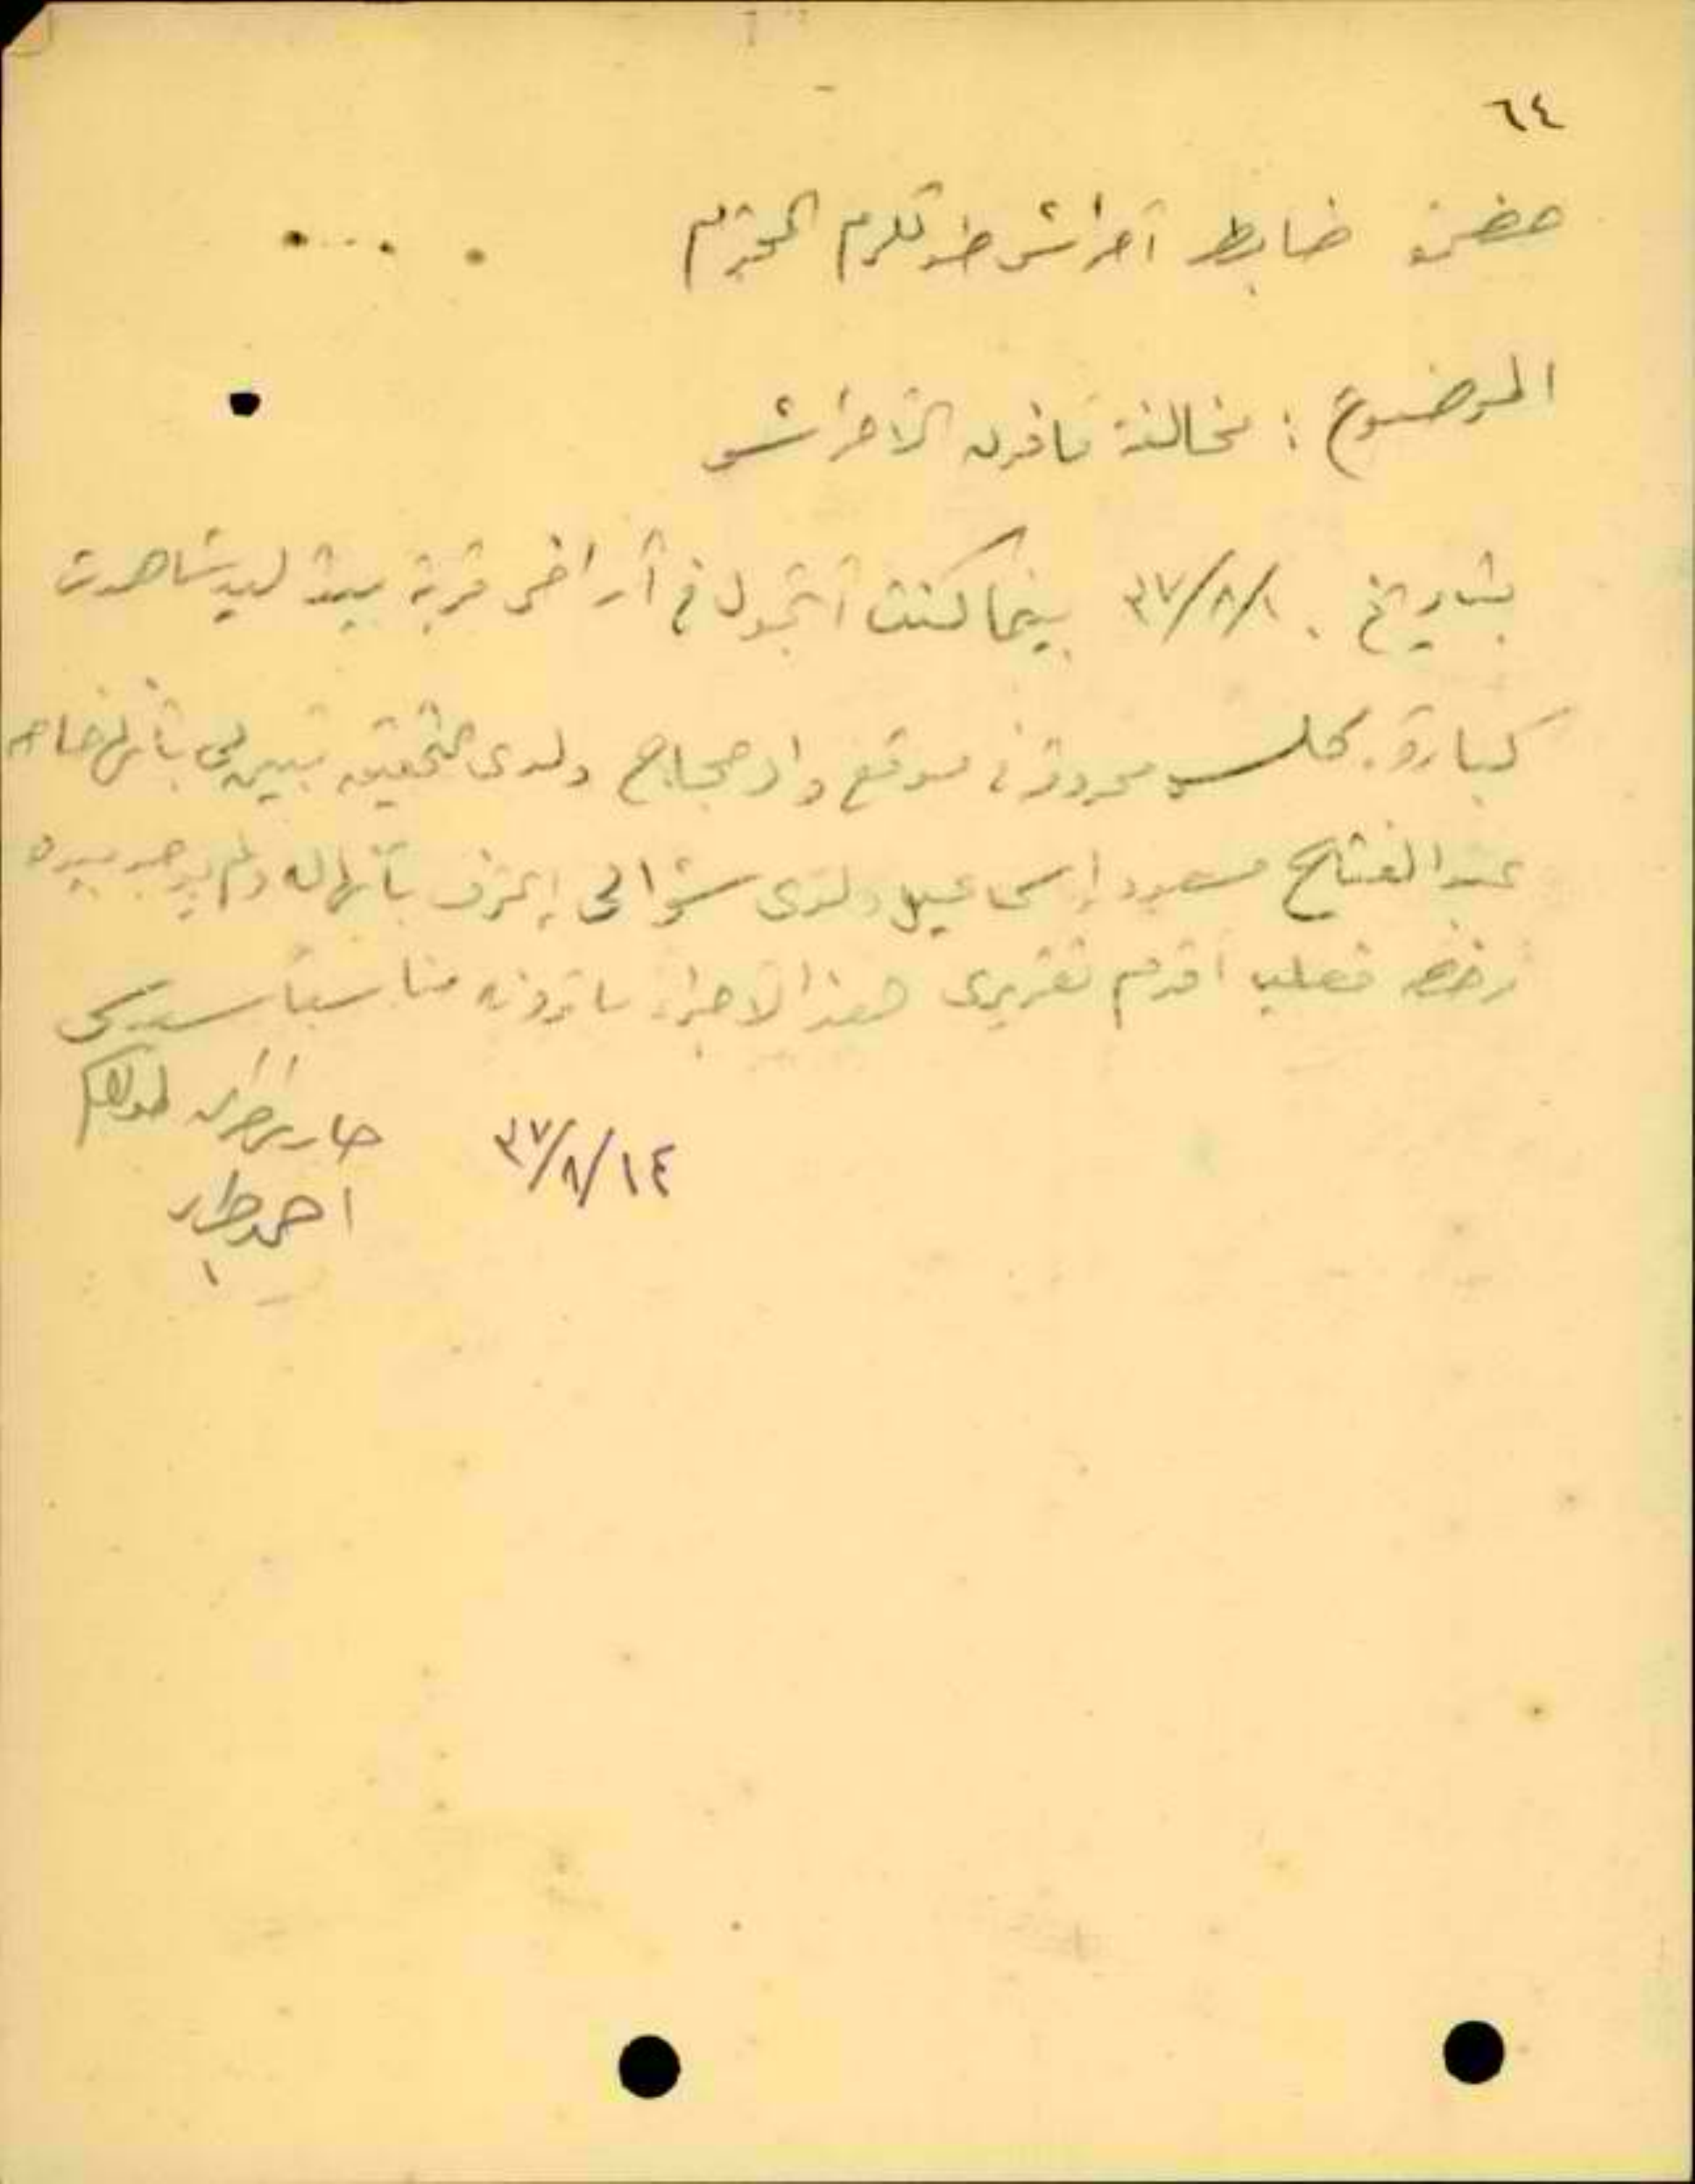 ٦٤
حضرة ضابط أحراش طولكرم المحترم
الموضوع : مخالفة قانون الأحراش
بتاريخ ٣٧/٨/١٠ بينما كنت أتجول في أراضي قرية بيت ليد شاهدت
كبارة كلس محروقة في موقع واد حجاج ولدى التحقيق تبين لي بأنها خاصة
عبد الفتاح مسعود إسماعيل ولدى سؤالي إعترف بأنها له ولم يوجد بيده
رخصة فعليه أقدم تقريري هذا لاجراء ما ترونه مناسباً سيدي
٣٧/٨/١٤ حارس أحراش طولكرم
احمد